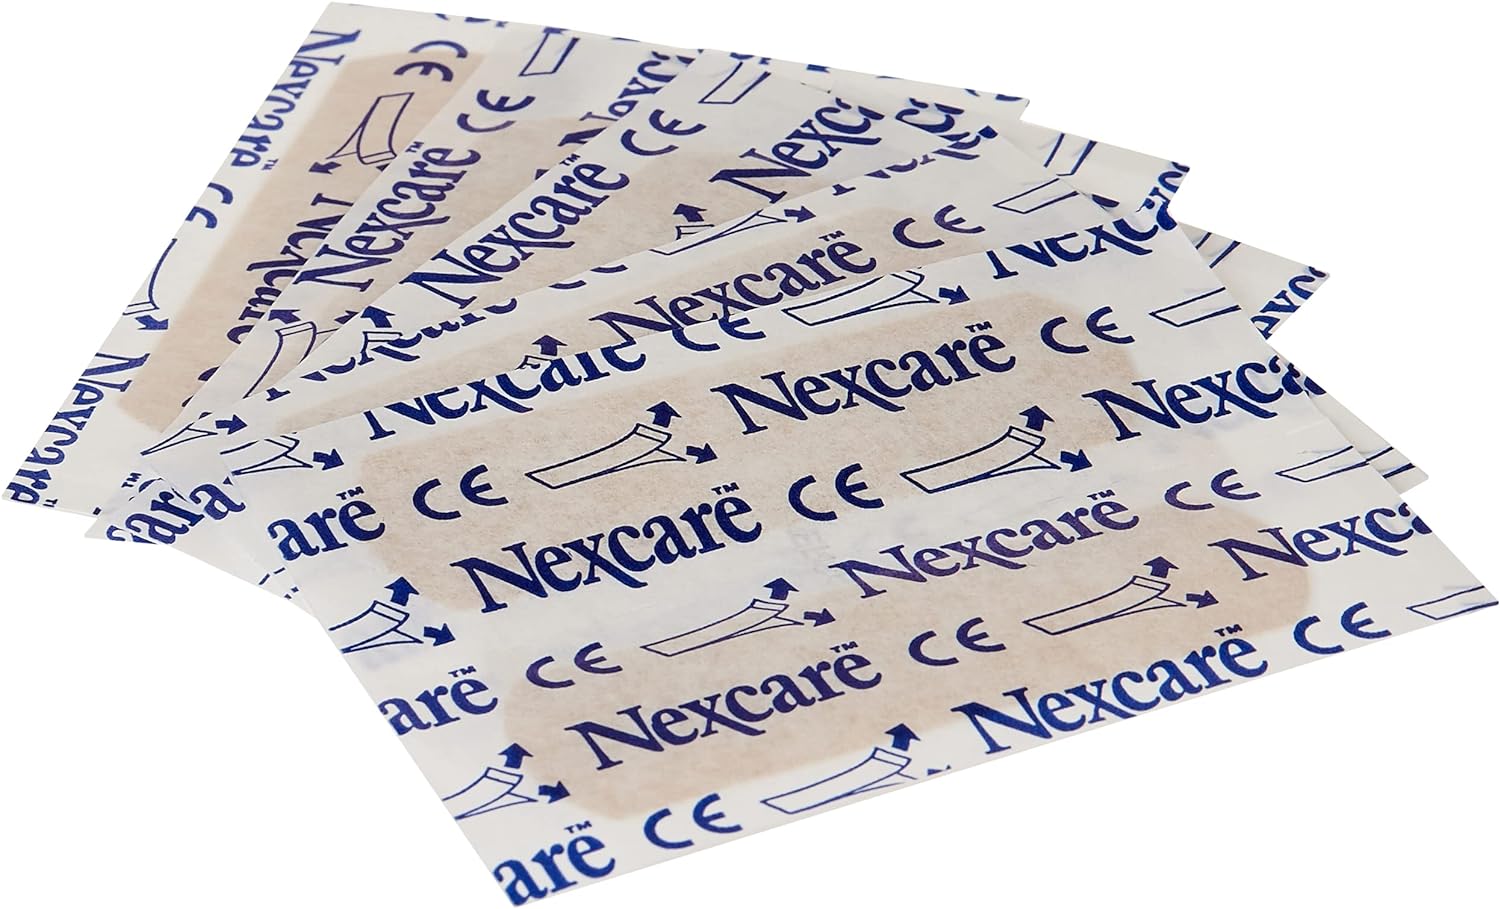 Nexcare™
CE
Nexcare™
CE
Nexcare™
CE
Nexcare™
CE
Nexcare™
CE
Nexcare™
CE
Nexcare
are™
CE
Nexcare™
CE
Nexcare™
CE
Nexca
are™
CE
Nexcare™
CE
Nexcare™
CE
are™
CE